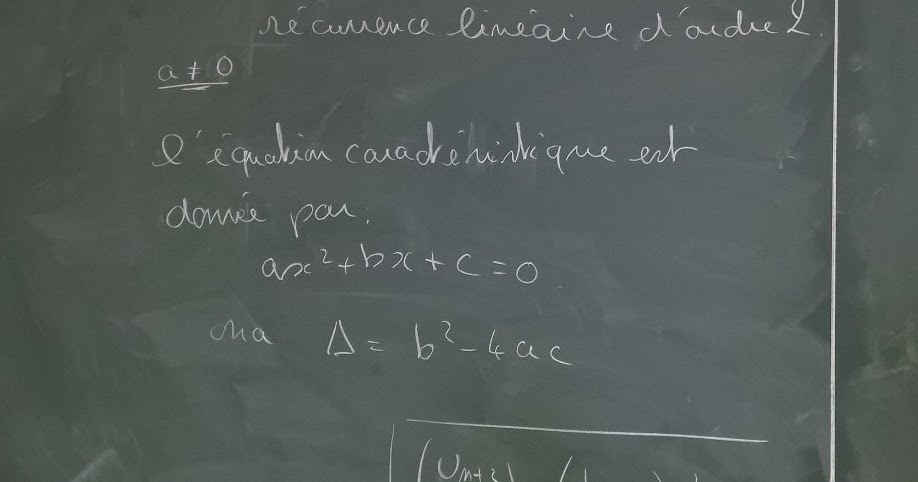 récurrence linéaire d'ordre 2.
a ≠ 0
l'équation caractéristique est
donnée par:
ax² + bx + c = 0.
on a Δ = b² - 4ac
(U_{n+2})